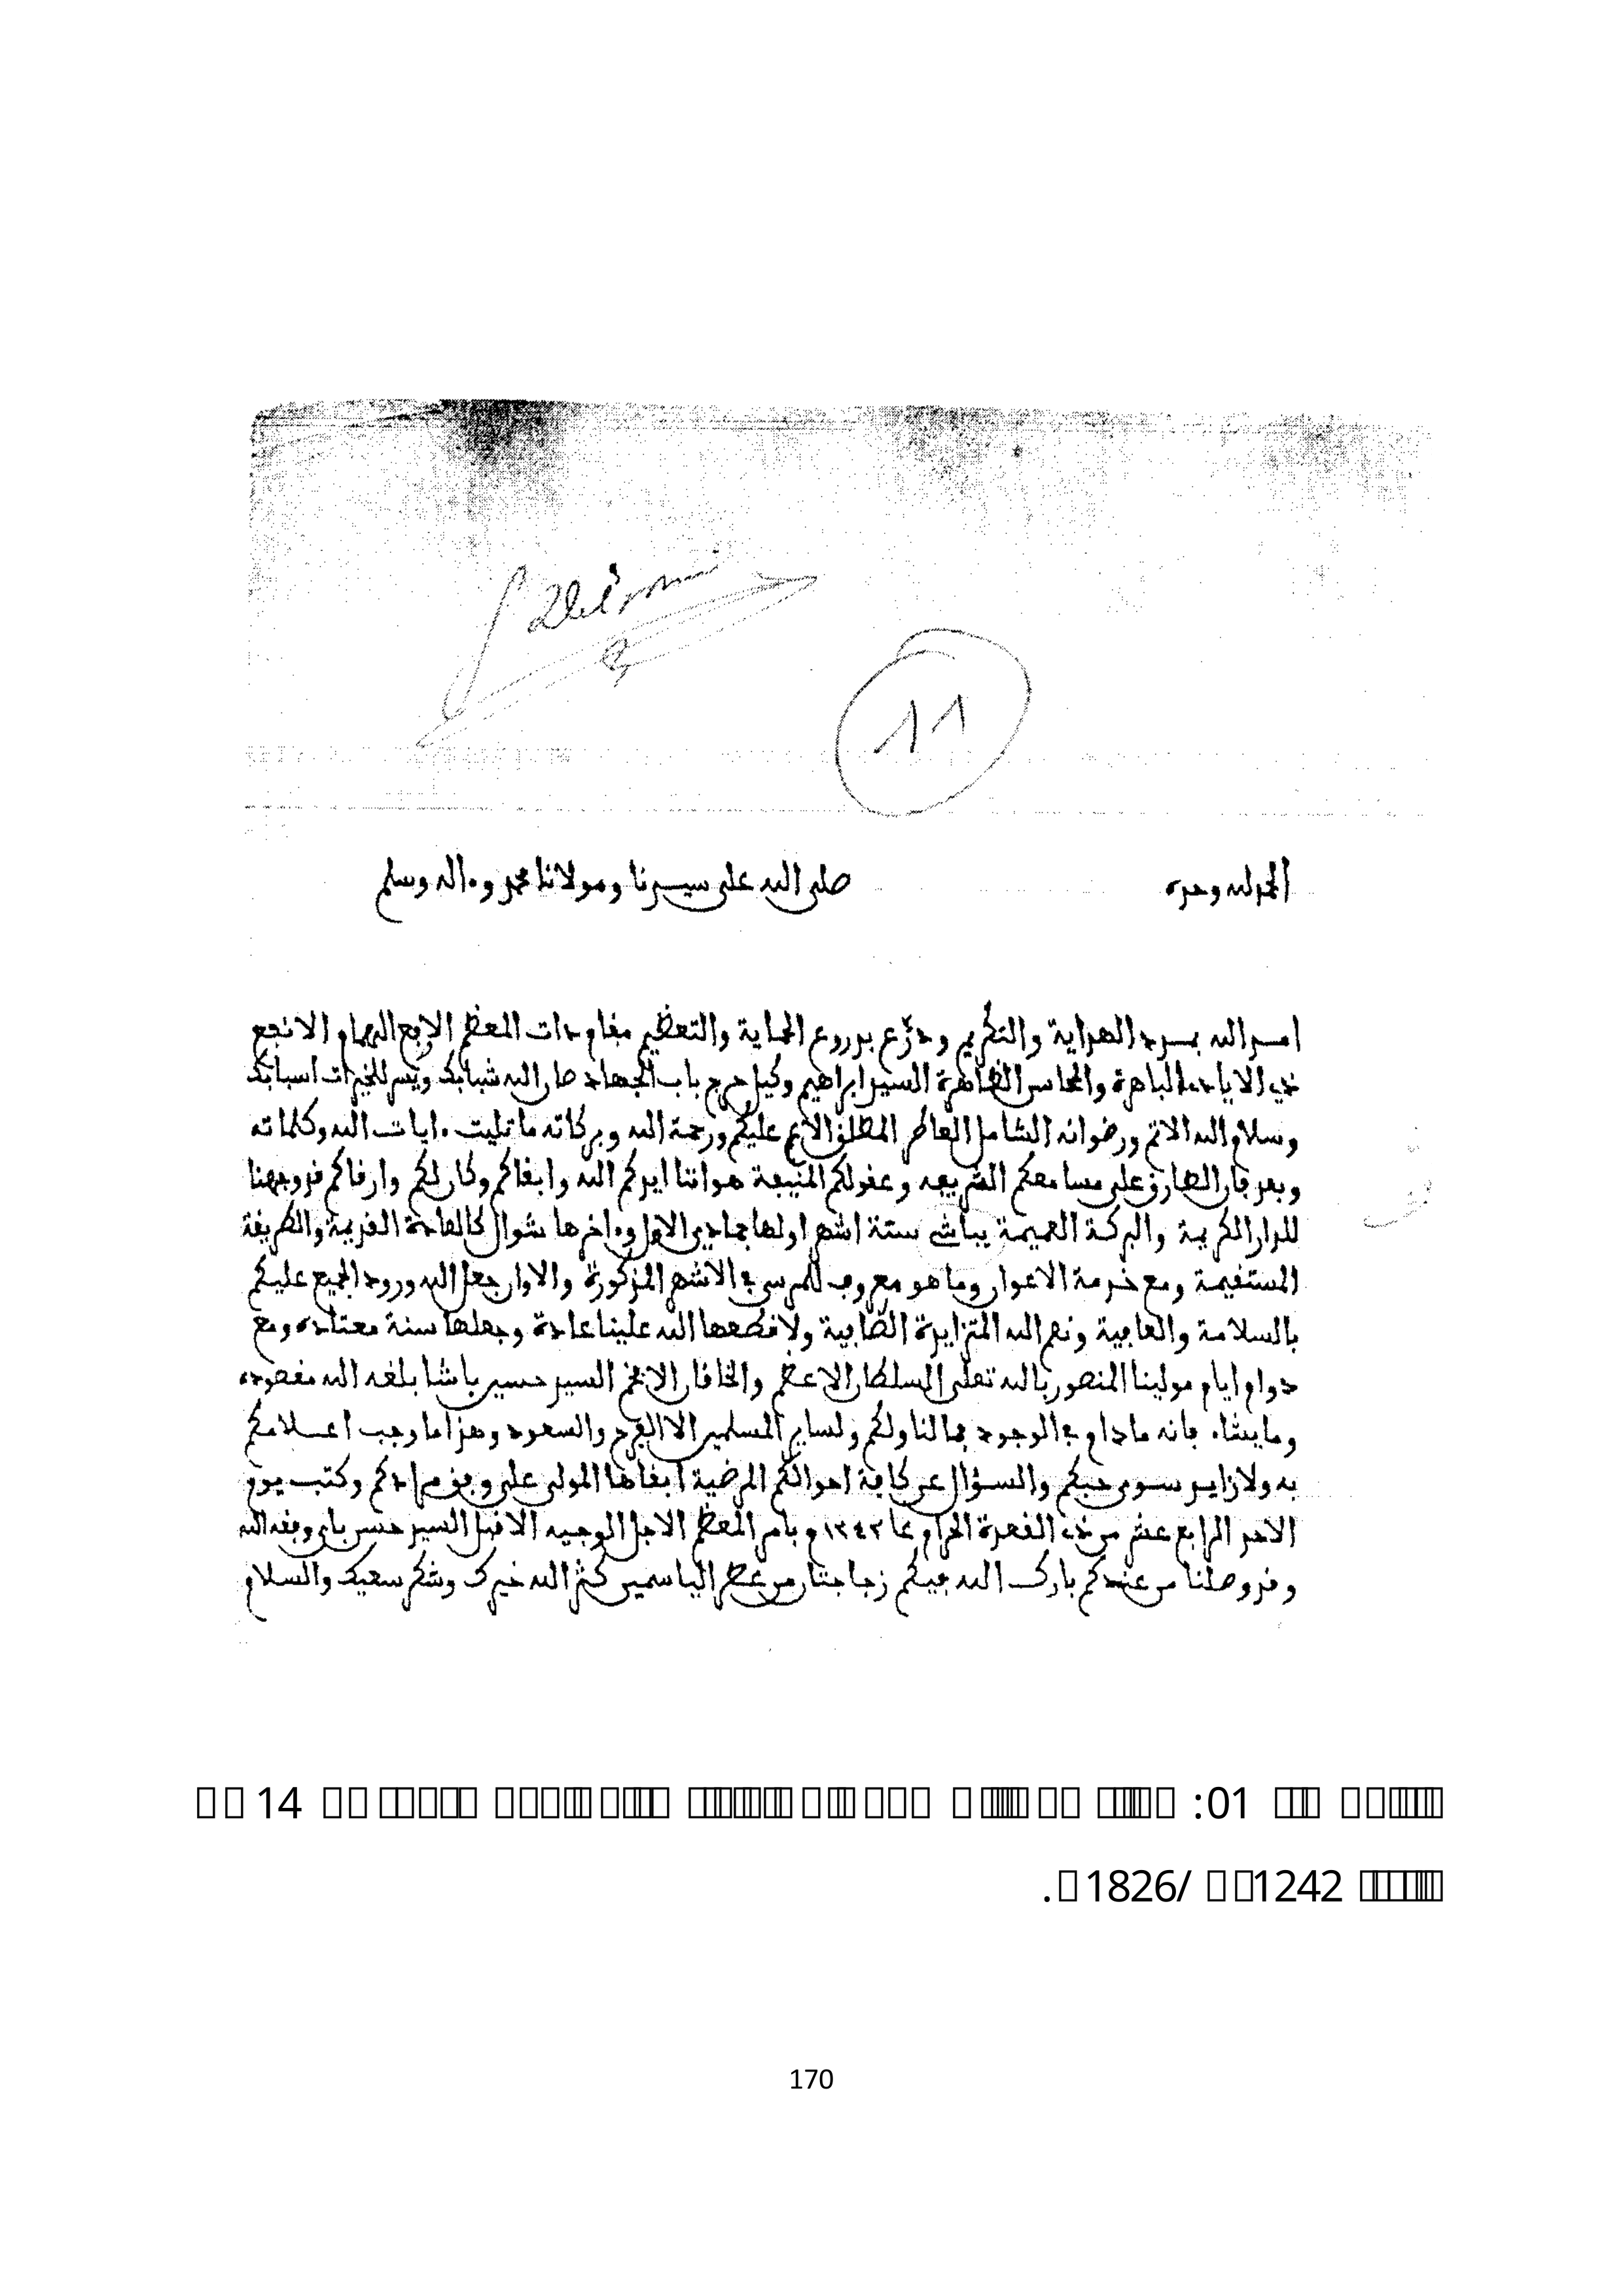 11
الحمد لله وحده صلى الله على سيدنا ومولانا محمد وءاله وسلم
امد الله بمدد الهداية والتكريم ودرّع بدروع الحماية والتعظيم مقاودات المعظم الارفع الهمام الانفع
ذي الايادي الباهرة والمحاسن الظاهرة السيد ابراهيم وكيل حرج باب الجهاد صان الله شبابك ويسر للخيرات اسبابك
وسلام الله الاتم ورضوانه الشامل العاطر المطلق الاعم عليكم ورحمة الله وبركاته ما تليت ءايات الله وكلماته
وبعد فان الطارق على مسامعكم الشريفه وعقولكم المنيفة هو اننا ايدكم الله وابقاكم وكان لكم وارقاكم قد وجهنا
للدار الكريمة والبركة العميمة ستة اشهر اولها جمادى الاول وءاخرها شوال كالعادة القديمة والطريقة
المستقيمة ومع خدمة الاعوان وما هو معروف للمرسى في الاشهر المذكورة والاوان جعل الله ورود الجميع عليكم
بالسلامة والعافية ونعم الله المتزايدة الضافية ولا قطعها الله علينا عادة وجعلها سنة معتاده ومع
دوام ايام مولينا المنصور بالله تعلى السلطان الاعظم والخاقان الافخم السيد حسين باشا بلغه الله مقصوده
وما يشاء فانه ما دام في الوجود فما لنا ولكم ولساير المسلمين الا الفرح والسعود وهذا ما وجب اعلامكم
به ولا زايد سوى حبكم والسؤال عن كافة احوالكم المرضية ابقاها المولى على وفق مرادكم وكتب يوم
الاحد الرابع عشر من ذي القعدة الحرام عا ١٢٤٢ وبامر المعظم الاجل الوجيه الافبل السيد حسن باي وفقه الله
وقد وصلنا من عندكم بارك الله فيكم زجاجتان من عطر الياسمين كثر الله خيرك وشكر سعيك والسلام
01:
14
1242
/1826
170